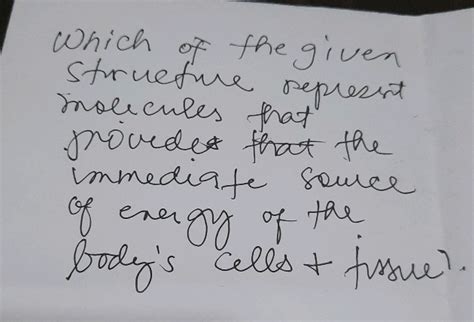 Which of the given
structure represent
molecules that
provides that the
immediate source
of energy of the
body's cells + tissue?.